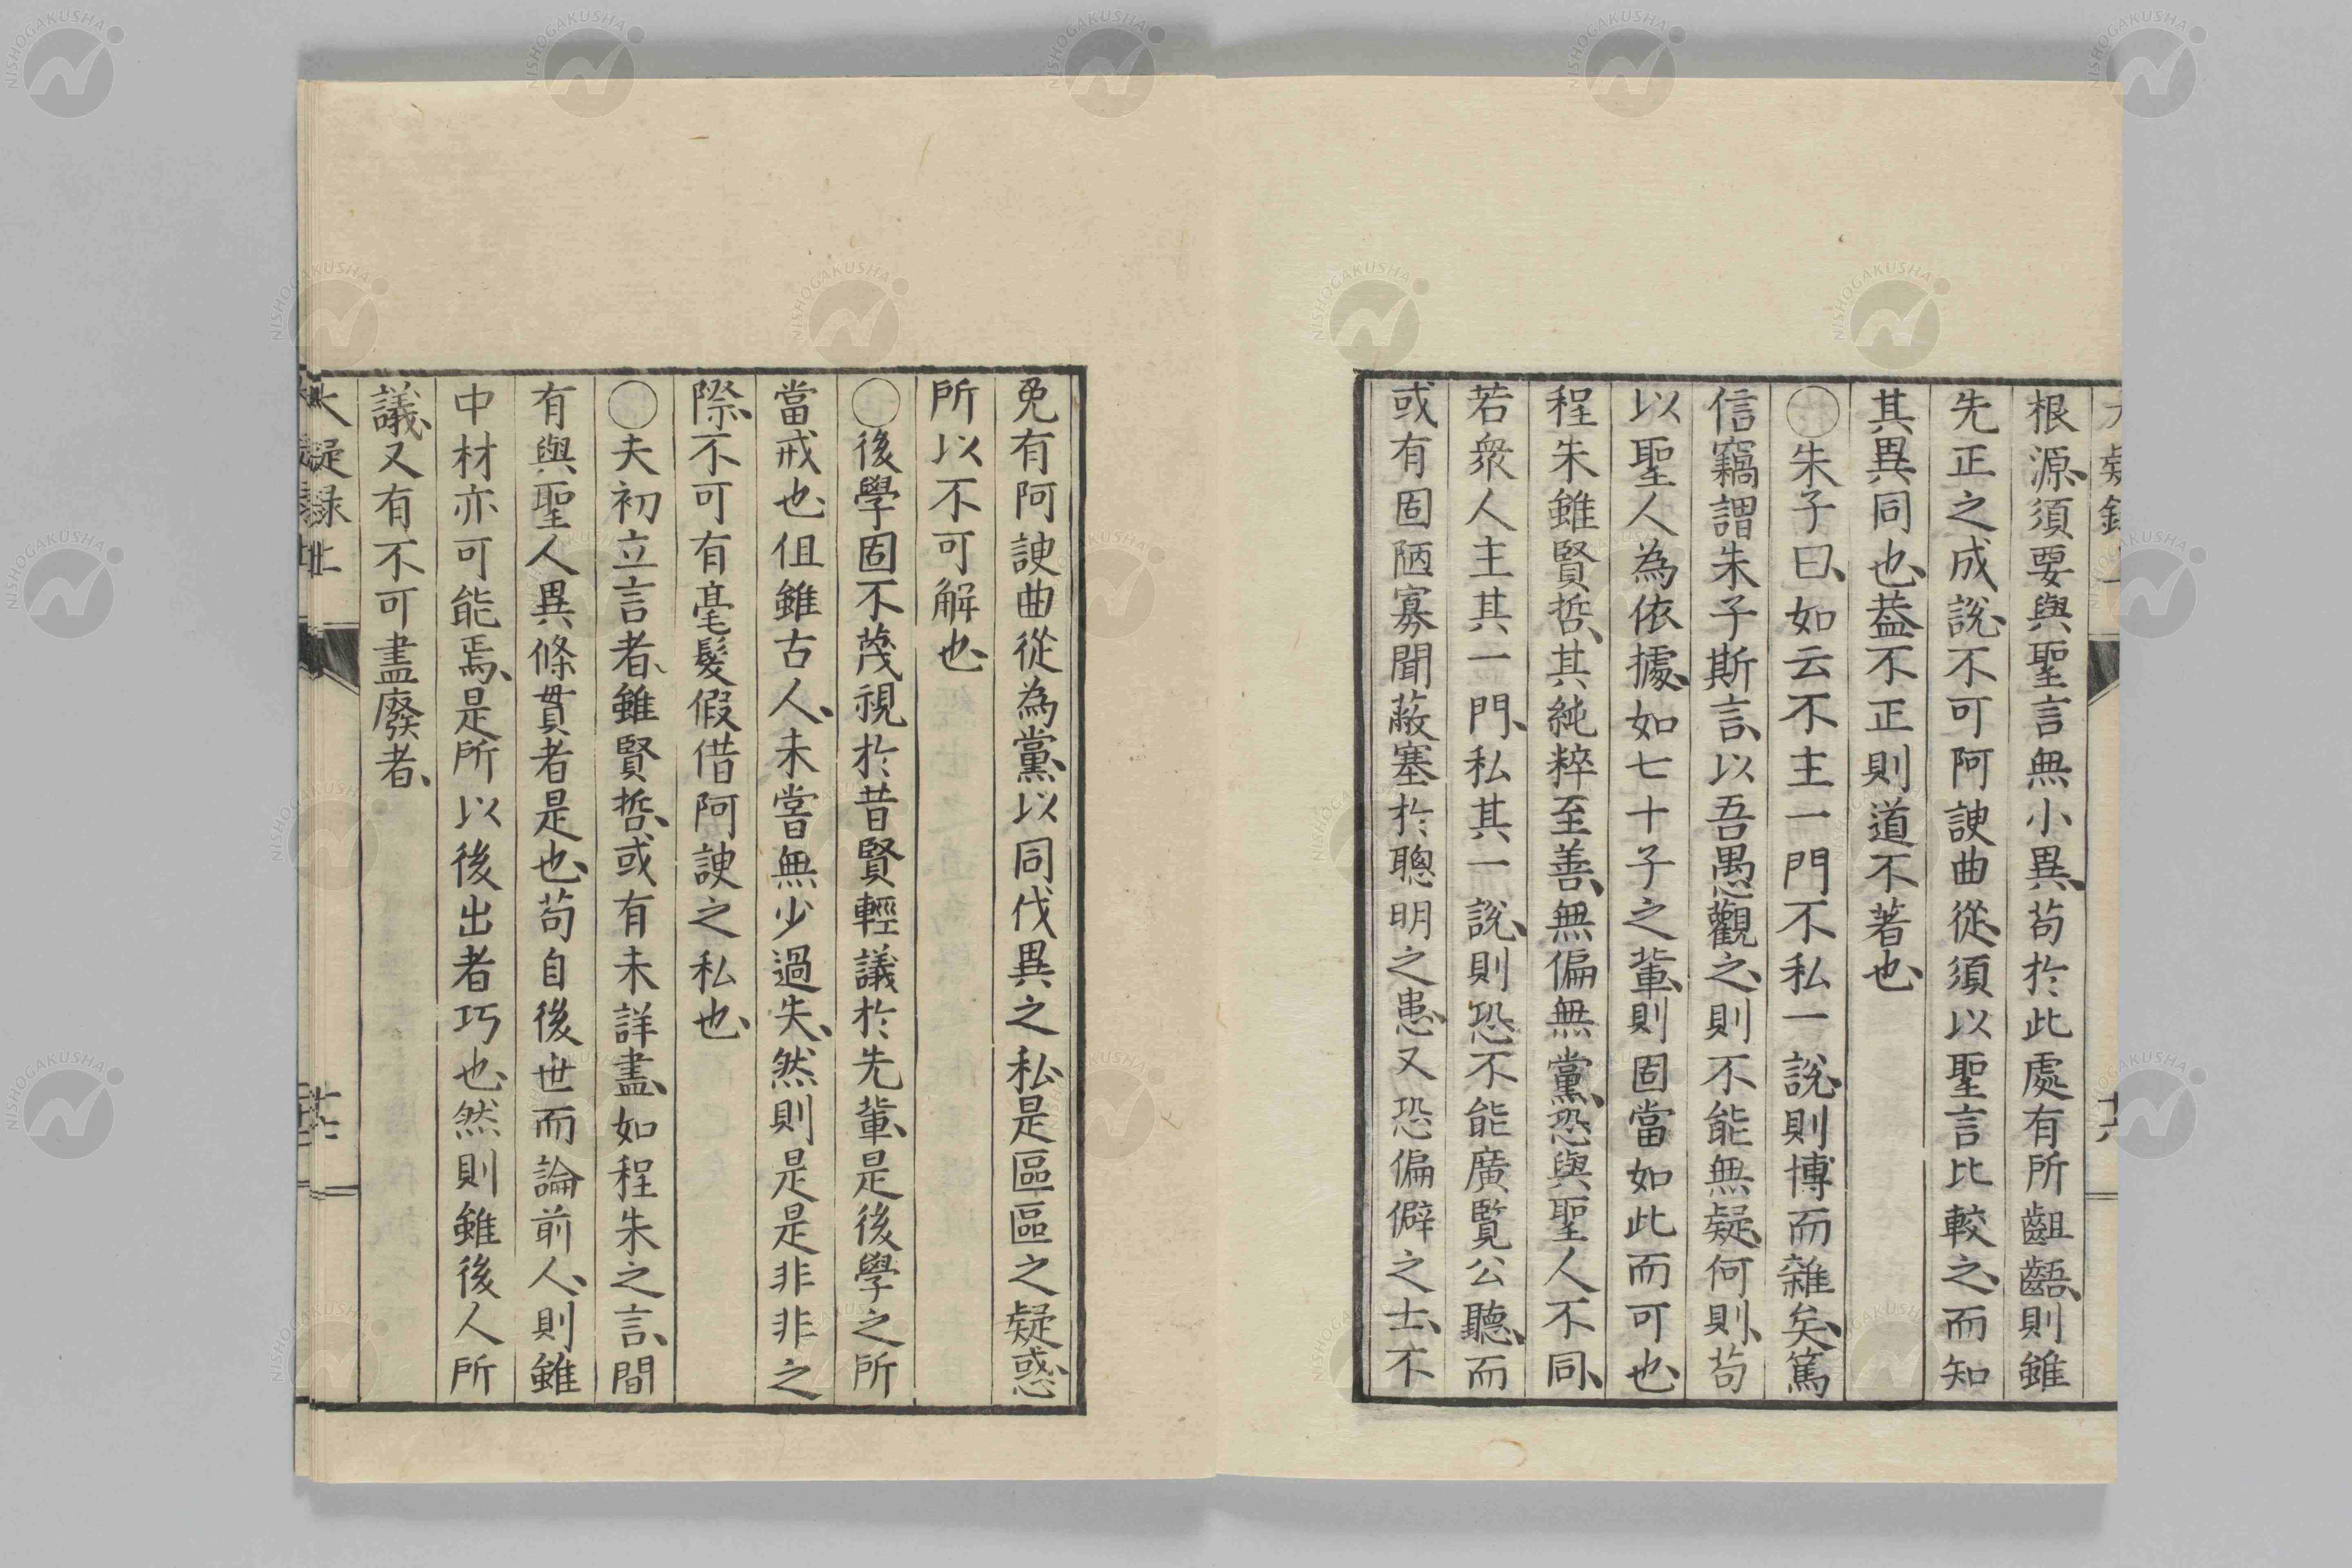 根源、須要與聖言無小異、苟於此處有所齟齬、則雖
先正之成說、不可阿諛曲從、須以聖言比較之、而知
其異同也、葢不正則道不著也、
○朱子曰、如云不主一門不私一說、則博而雜矣、篤
信竊謂朱子斯言、以吾愚觀之、則不能無疑、何則、苟
以聖人為依據、如七十子之輩、則固當如此而可也、
程朱雖賢哲、其純粹至善、無偏無黨、恐與聖人不同、
若衆人主其一門、私其一說、則恐不能廣覽公聽、而
或有固陋寡聞蔽塞於聰明之患、又恐偏僻之士、不
免有阿諛曲從為黨、以同伐異之私、是區區之疑惑、
所以不可解也、
○後學固不蔑視於昔賢輕議於先輩、是後學之所
當戒也、但雖古人、未嘗無少過失、然則是是非非之
際、不可有毫髮假借阿諛之私也、
○夫初立言者、雖賢哲、或有未詳盡、如程朱之言、間
有與聖人異條貫者是也、苟自後世而論前人、則雖
中材亦可能焉、是所以後出者巧也、然則雖後人所
議、又有不可盡廢者、
大疑録上